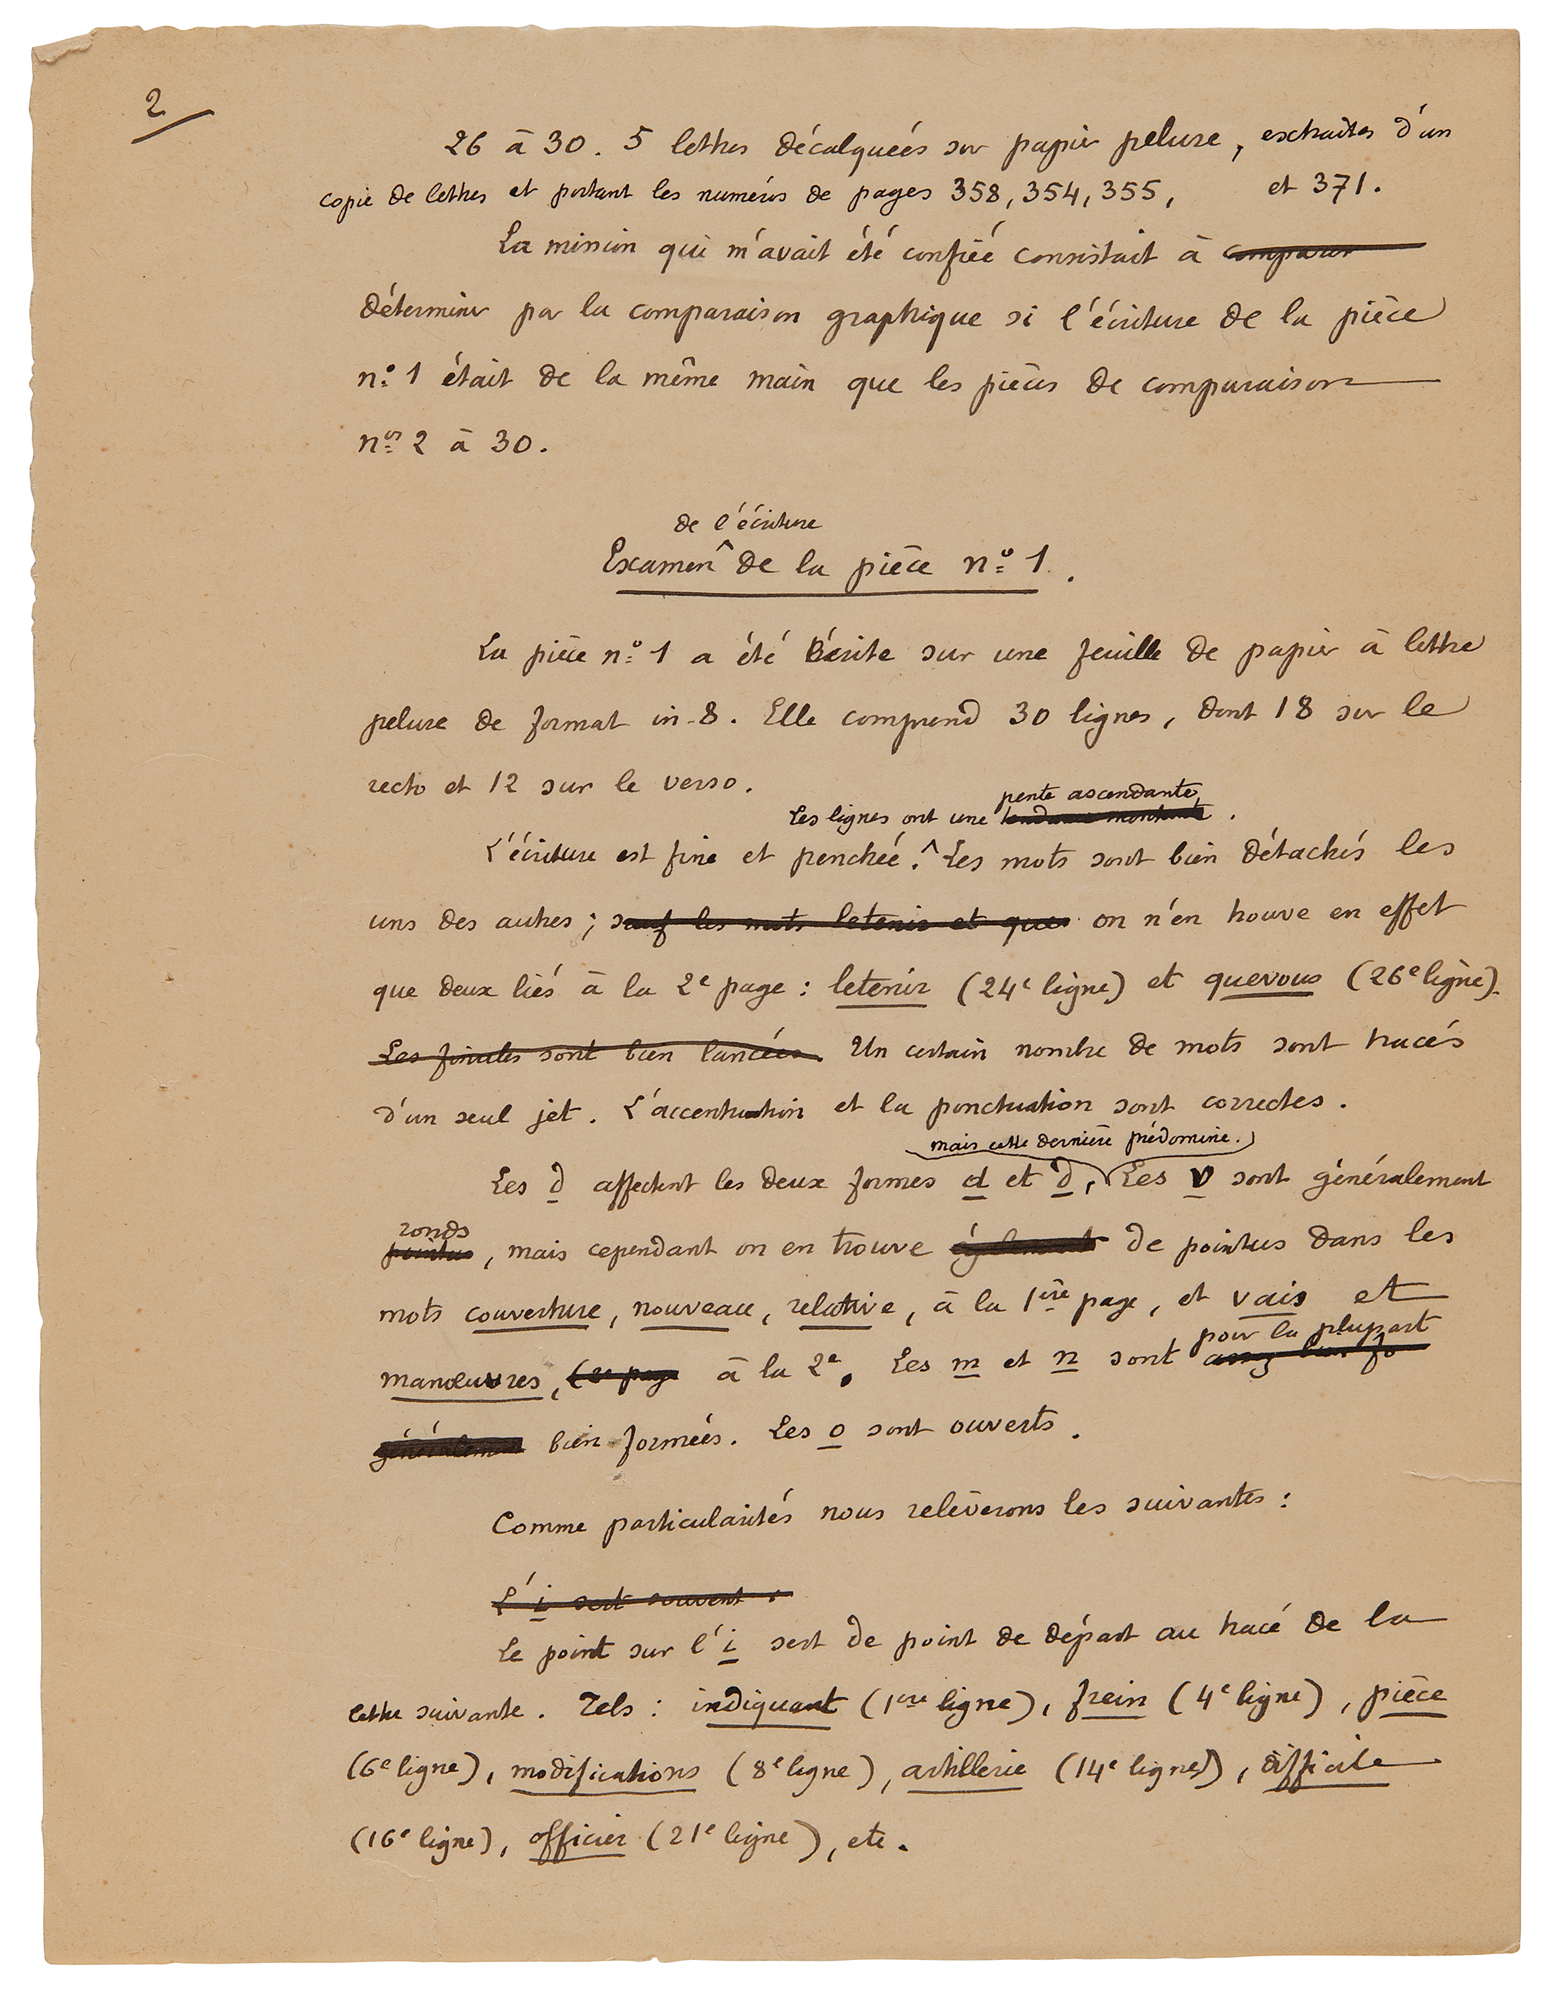 2
26 à 30. 5 lettres décalquées sur papier pelure, extraites d'un
copie de lettres et portant les numéros de pages 358, 354, 355, et 371.
La mission qui m'avait été confiée consistait à comparer
déterminer par la comparaison graphique si l'écriture de la pièce
n° 1 était de la même main que les pièces de comparaison
nos 2 à 30.
de l'écriture
Examen ^ de la pièce n° 1.
La pièce n° 1 a été écrite sur une feuille de papier à lettre
pelure de format in-8. Elle comprend 30 lignes, dont 18 sur le
recto et 12 sur le verso.
pente ascendante
Les lignes ont une tendance montante.
L'écriture est fine et penchée. ^ Les mots sont bien détachés les
uns des autres; sauf les mots letenir et que on n'en trouve en effet
que deux liés à la 2e page : letenir (24e ligne) et quevous (26e ligne).
Les finales sont bien lancées. Un certain nombre de mots sont tracés
d'un seul jet. L'accentuation et la ponctuation sont correctes.
mais cette dernière prédomine.
Les d affectent les deux formes d et d, Les v sont généralement
ronds
pointus, mais cependant on en trouve également de pointus dans les
mots couverture, nouveau, relative, à la 1ère page, et vais et
pour la plupart
manœuvres, (2e page à la 2e. Les m et n sont assez bien fo
généralement bien formées. Les o sont ouverts.
Comme particularités nous relèverons les suivantes :
L'i sert souvent :
Le point sur l'i sert de point de départ au tracé de la
lettre suivante. Tels : indiquant (1ère ligne), frein (4e ligne), pièce
(6e ligne), modifications (8e ligne), artillerie (14e ligne), difficile
(16e ligne), officier (21e ligne), etc.